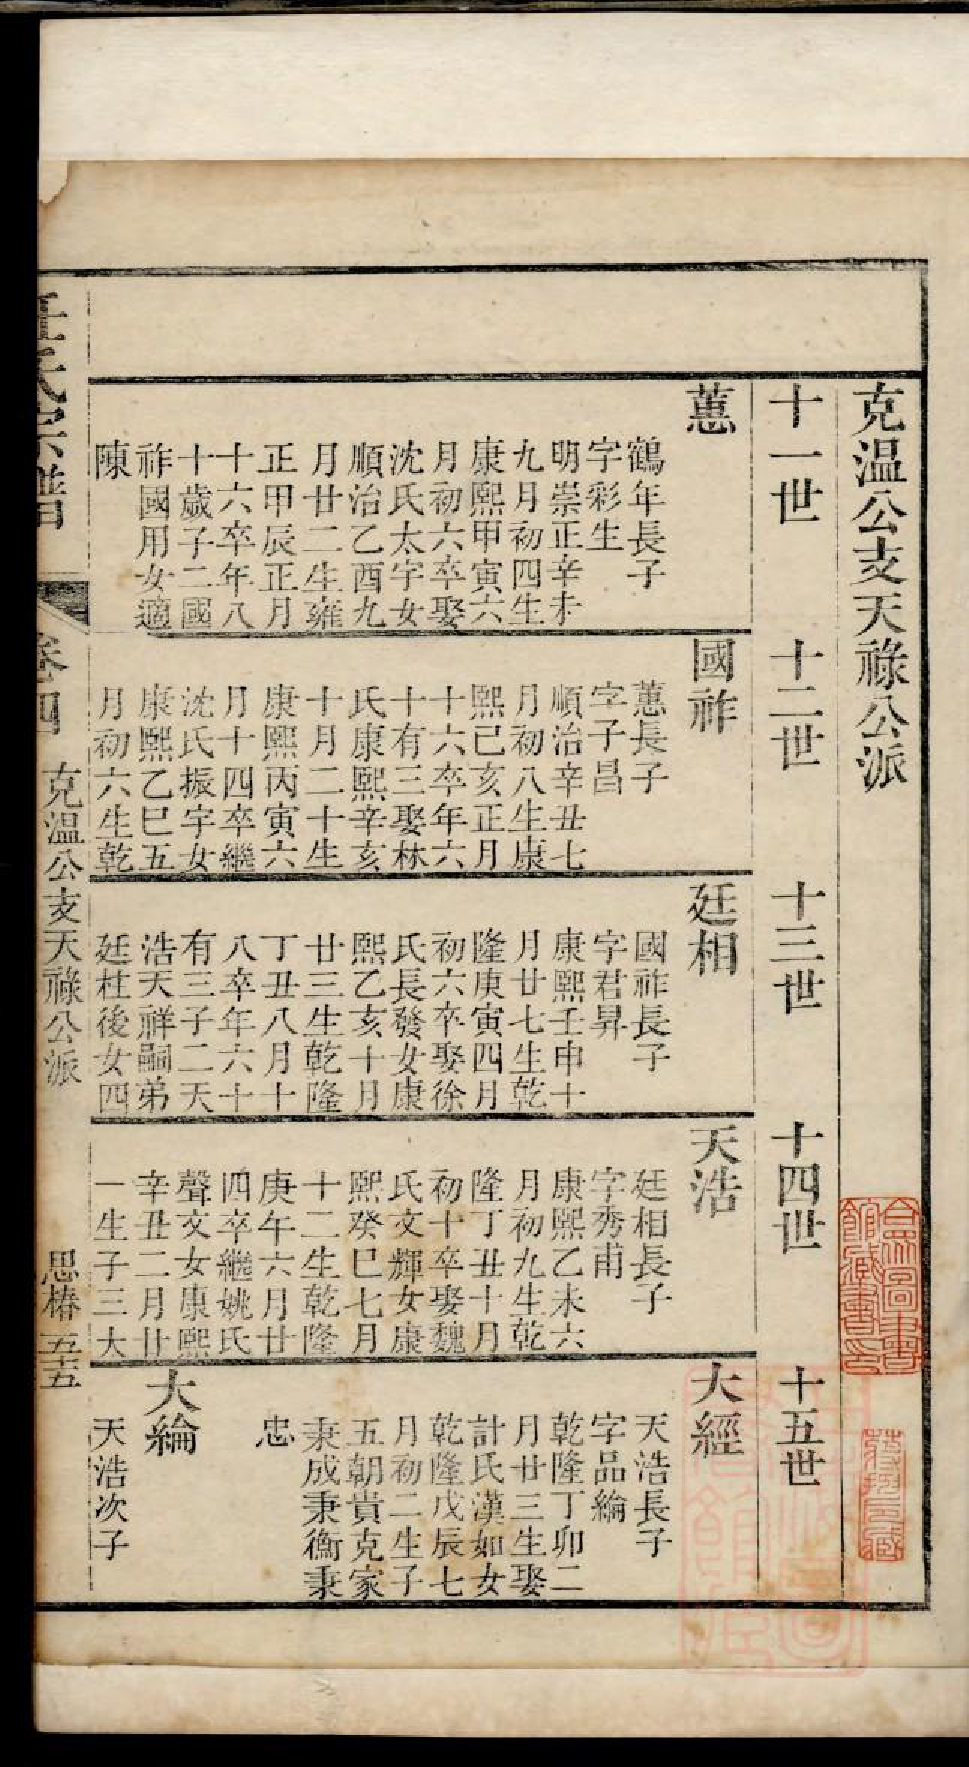 克溫公支天祿公派
十一世
十二世
十三世
十四世
十五世
蕙
鶴年長子
字彩生
明崇正辛未
九月初四生
康熙甲寅六
月初六卒娶
沈氏太宇女
順治乙酉九
月廿二生雍
正甲辰正月
十六卒年八
十歲子二國
祚國用女適
陳
國祚
蕙長子
字子昌
順治辛丑七
月初八生康
熙已亥正月
十六卒年六
十有三娶林
氏康熙辛亥
十月二十生
康熙丙寅六
月十四卒繼
沈氏振宇女
康熙乙巳五
月初六生乾
廷相
國祚長子
字君昇
康熙壬申十
月廿七生乾
隆庚寅四月
初六卒娶徐
氏長發女康
熙乙亥十月
廿三生乾隆
丁丑八月十
八卒年六十
有三子二天
浩天祥嗣弟
廷柱後女四
天浩
廷相長子
字秀甫
康熙乙未六
月初九生乾
隆丁丑十月
初十卒娶魏
氏文輝女康
熙癸巳七月
十二生乾隆
庚午六月廿
四卒繼姚氏
聲交女康熙
辛丑二月廿
一生子三大
大經
天浩長子
字品綸
乾隆丁卯二
月廿三生娶
計氏漢如女
乾隆戊辰七
月初二生子
五朝貴克家
秉成秉衡秉
忠
大綸
天浩次子
氏宗譜
卷四
克溫公支天祿公派
思椿